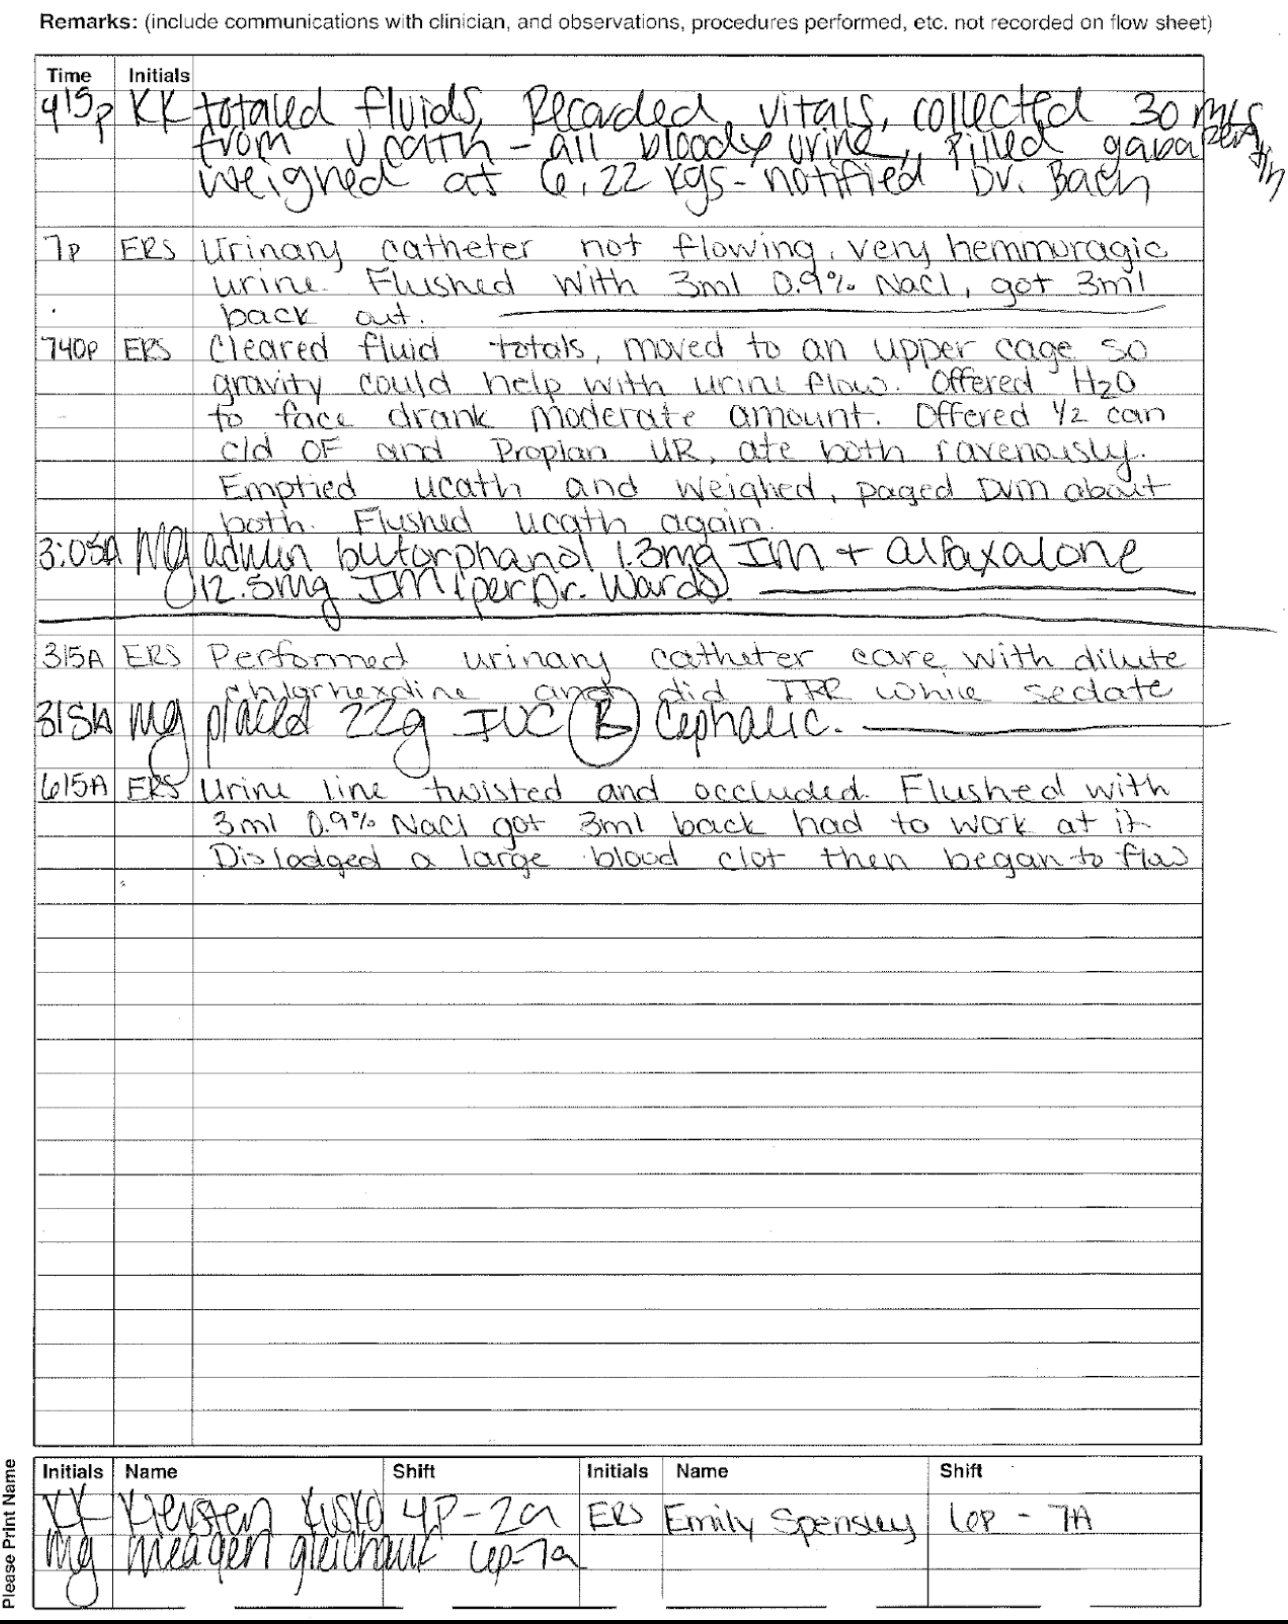 Remarks: (include communications with clinician, and observations, procedures performed, etc. not recorded on flow sheet)
Time Initials
415p KK totaled fluids, Recorded vitals, collected 30 mls
from U cath - all bloody urine, pilled gabapentin
weighed at 6.22 kgs - notified Dr. Bach
7p ERS Urinary catheter not flowing, very hemmoragic
urine. Flushed with 3ml 0.9% NaCl, got 3ml
back out.
740p ERS Cleared fluid totals, moved to an upper cage so
gravity could help with urine flow. Offered H2O
to face drank moderate amount. Offered 1/2 can
c/d OF and Proplan UR, ate both ravenously.
Emptied ucath and weighed, paged DVM about
both. Flushed ucath again.
3:05A Mg admin butorphanol 1.3mg IM + alfaxalone
12.5mg IM (per Dr. Ward).
315A ERS Performed urinary catheter care with dilute
chlorhexdine and did TPR while sedate
315A mg placed 22g IVC Cephalic.
615A ERS Urine line twisted and occluded. Flushed with
3ml 0.9% NaCl got 3ml back had to work at it
Dislodged a large blood clot then began to flow
Please Print Name
Initials Name Shift Initials Name Shift
KK Kiersten Kusko 4P-2a ERS Emily Spensley 6P - 7A
mg meagen gleichauf 6p-7a